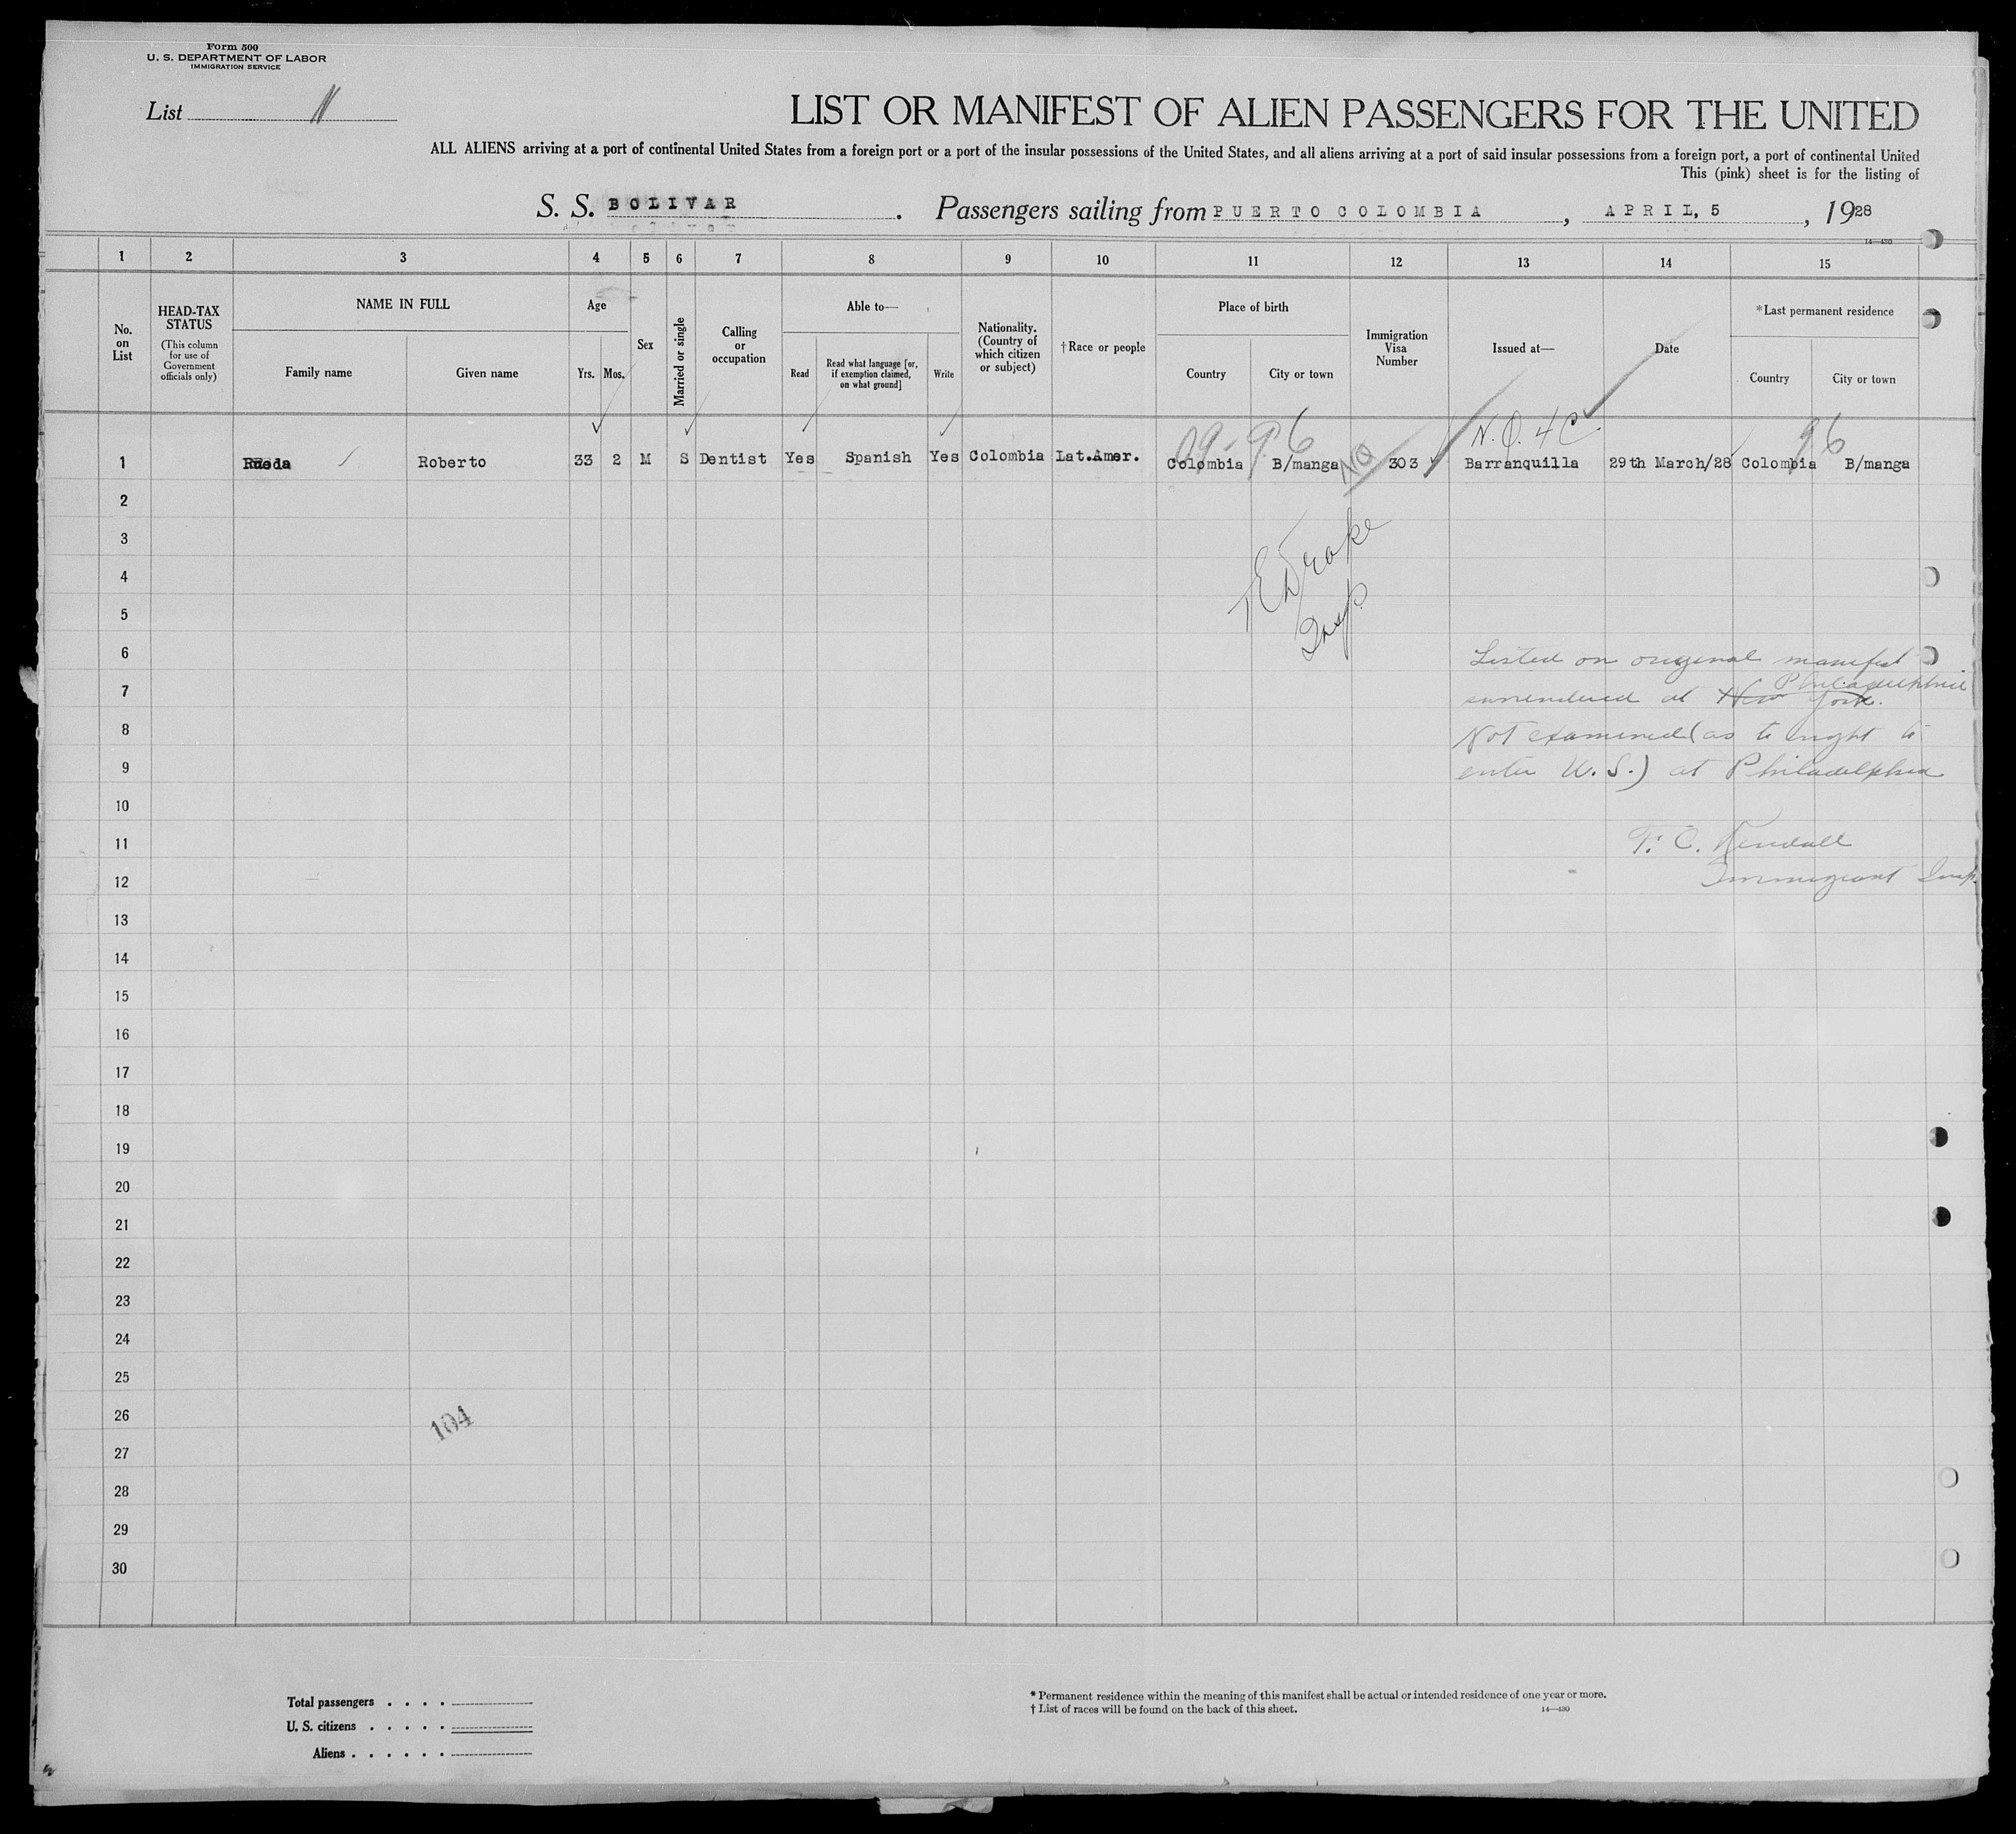 Form 500
U. S. DEPARTMENT OF LABOR
IMMIGRATION SERVICE
List 11
LIST OR MANIFEST OF ALIEN PASSENGERS FOR THE UNITED
ALL ALIENS arriving at a port of continental United States from a foreign port or a port of the insular possessions of the United States, and all aliens arriving at a port of said insular possessions from a foreign port, a port of continental United
This (pink) sheet is for the listing of
S. S. BOLIVAR. Passengers sailing from PUERTO COLOMBIA, APRIL, 5, 1928
14—430
1 2 3 4 5 6 7 8 9 10 11 12 13 14 15
No. on List
HEAD-TAX STATUS
(This column for use of Government officials only)
NAME IN FULL
Family name
Given name
Age
Yrs.
Mos.
Sex
Married or single
Calling or occupation
Able to—
Read
Read what language [or, if exemption claimed, on what ground]
Write
Nationality. (Country of which citizen or subject)
†Race or people
Place of birth
Country
City or town
Immigration Visa Number
Issued at—
Date
*Last permanent residence
Country
City or town
09-96 N.Q. 4C 96
1 Rueda Roberto 33 2 M S Dentist Yes Spanish Yes Colombia Lat.Amer. Colombia B/manga NQ 303 Barranquilla 29th March/28 Colombia B/manga
2
3
TEDrake
4
5
Insp.
6
Listed on original manifest
7
surrendered at New York. Philadelphia
8
Not examined (as to right to
9
enter U. S.) at Philadelphia
10
11
T. C. Kendall
12
Immigrant Insp.
13
14
15
16
17
18
19
20
21
22
23
24
25
26
104
27
28
29
30
Total passengers . . . .
U. S. citizens . . . . .
Aliens . . . . . .
* Permanent residence within the meaning of this manifest shall be actual or intended residence of one year or more.
† List of races will be found on the back of this sheet.
14—430